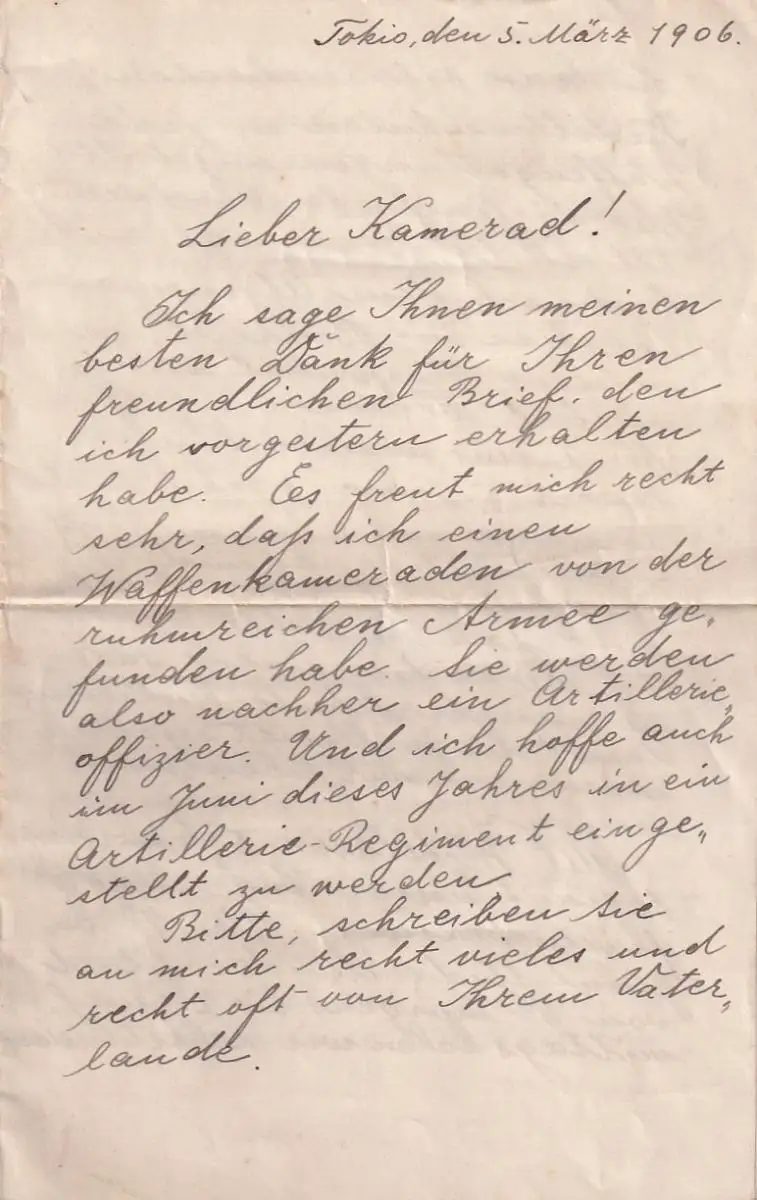 Tokio, den 5. März 1906.
Lieber Kamerad!
Ich sage Ihnen meinen
besten Dank für Ihren
freundlichen Brief. den
ich vorgestern erhalten
habe. Es freut mich recht
sehr, daß ich einen
Waffenkameraden von der
ruhmreichen Armee ge„
funden habe. Sie werden
also nachher ein Artillerie„
offizier. Und ich hoffe auch
im Juni dieses Jahres in ein
Artillerie-Regiment einge„
stellt zu werden.
Bitte, schreiben Sie
an mich recht vieles und
recht oft von Ihrem Vater„
lande.